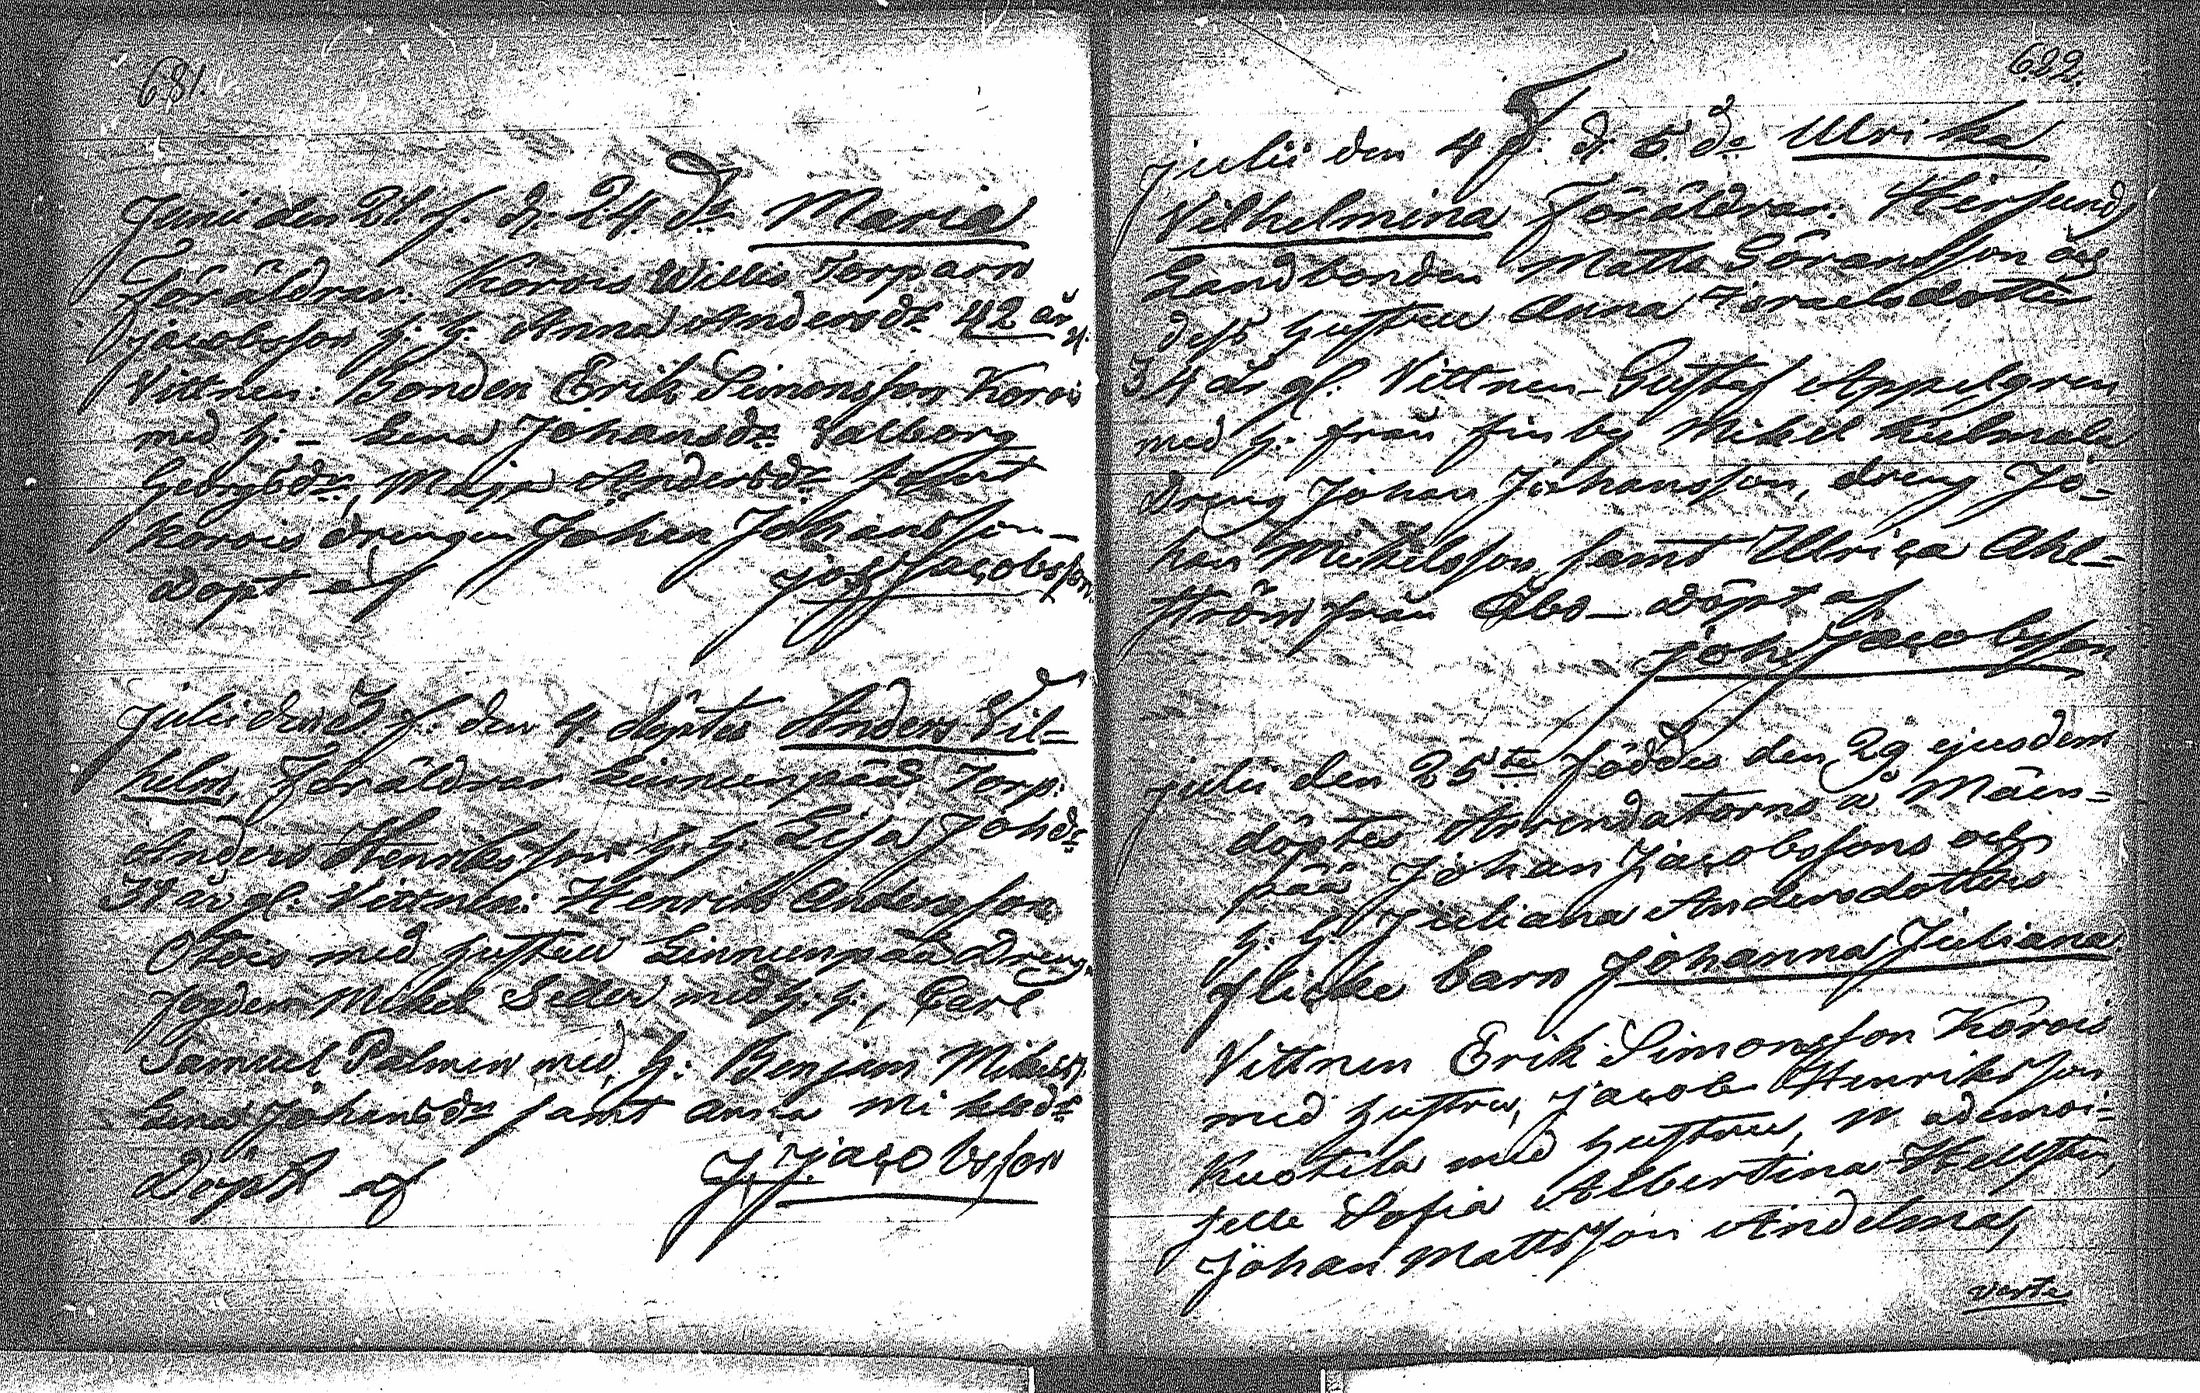 681.
Junii den 21 f. d. 24. dn Maria
Föräldrar. Korois Willis Torparn
Jacobsson h. h. Anna Andersdr 42 år gl.
Vittnen: Bonden Erik Simonsson Korois
med h: – Lena Johansdr Valborg
Georgsdr, Maja Andersdr samt
Korois drengen Johan Johansson –
Döpt af Joh Jacobsson
Julii den 3 f. den 4. döptes Anders Vil=
helm, Föräldrar Linnunpää Torp.
Anders Henriksson h. h. Lisa Johdr
år gl. Vittnen: Henrik Andersson
Otois med hustru Linnunpää Dreng
fogden Mikel med h. h., Carl
Samuel Palmen med h: Benjam Mikels.
Lena Johansdr samt Anna Mikelsdr
Döpt af J. Jacobsson
622.
Julii den 4 f. d. 5. dn Ulrika
Vilhelmina Föräldrar. Hirsunds
Landbonden Matts Göransson och
dess hustru Anna Israelsdotter
34 år gl. Vittnen – Gustaf Appelgren
med h: från Finby Mikel Kulmala
Dreng Johan Johansson, dreng Jo=
han Mikelsson samt Ulrica Ahl=
ström från Åbo – döpt af
Joh Jacobsson
Julii den 25te föddes den 29 ejusdem
döptes Arrendatorns å
pää Johan Jacobssons och
h. h. Juliana Andersdotters
flicke barn Johanna Juliana
Vittnen Erik Simonsson Korois
med hustru, Jacob Henriksson
Kuotila med hustru, Mademoi=
selle Sofia Albertina Hellsten,
Johan Mattsson
verte